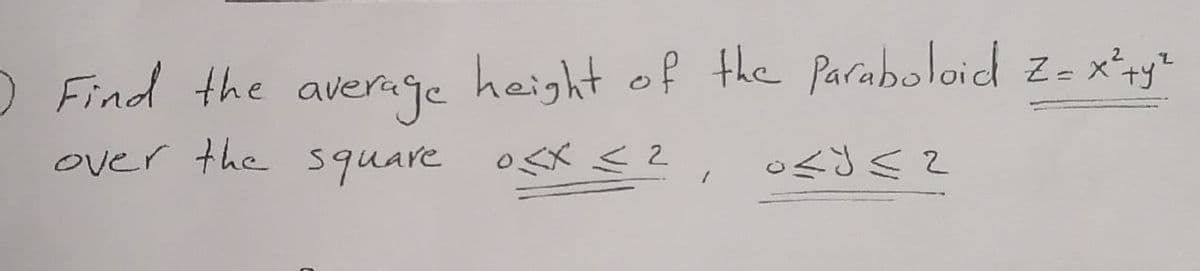 ) Find the average height of the Paraboloid z = x²+y²
over the square 0≤x ≤ 2 , 0≤y≤ 2